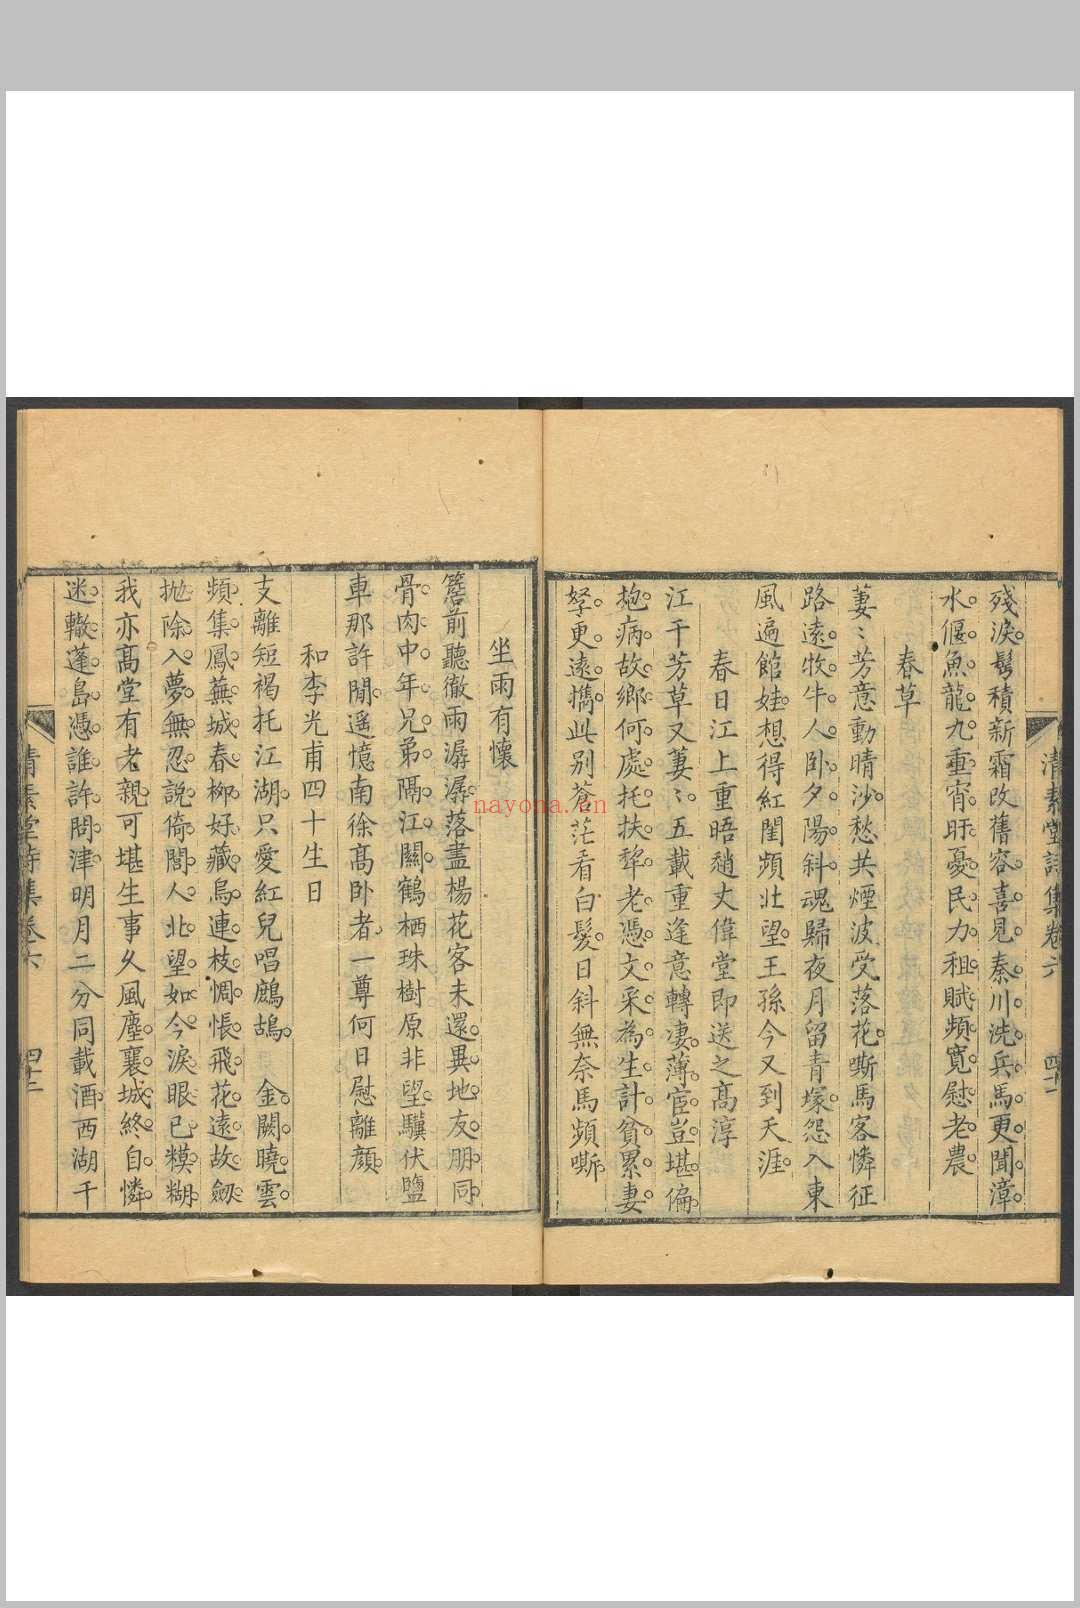 清素堂詩集卷六
四十一
殘淚鬂積新霜改舊容喜見秦川洗兵馬更聞漳
水偃魚龍九重宵旰憂民力租賦頻寬慰老農
春草
萋〻芳意動晴沙愁共煙波受落花嘶馬客憐征
路遠牧牛人卧夕陽斜魂歸夜月留青塚怨入東
風遍館娃想得紅閨頻北望王孫今又到天涯
春日江上重晤趙丈偉堂即送之高淳
江干芳草又萋〻五載重逢意轉凄薄宦豈堪偏
抱病故鄉何處托扶犂老憑文采為生計貧累妻
孥更遠攜此別蒼茫看白髮日斜無奈馬頻嘶
坐雨有懷
簷前聽徹雨潺潺落盡楊花客未還異地友朋同
骨肉中年兄弟隔江關鶴栖珠樹原非望驥伏鹽
車那許閒遥憶南徐高卧者一尊何日慰離顔
和李光甫四十生日
支離短褐托江湖只愛紅兒唱鷓鴣 金闕曉雲
頻集鳳蕪城春柳好藏烏連枝惆悵飛花遠故劒
拋除入夢無忍說倚閭人北望如今淚眼已糢糊
我亦高堂有老親可堪生事久風塵襄城終自憐
迷轍蓬島憑誰許問津明月二分同載酒西湖千
清素堂詩集卷六
四十二
nayona.cn